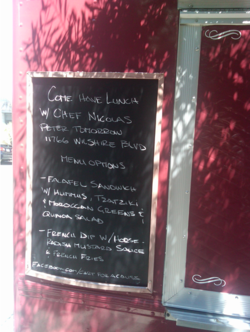 COME HAVE LUNCH
W/ CHEF NIKOLAS
PETER, TOMORROW
11766 WILSHIRE BLVD
MENU OPTIONS:
- FALAFEL SANDWICH
W/ HUMMUS, TZATZIKI
& MOROCCAN GREENS &
QUINOA SALAD
- FRENCH DIP W/ HORSE-
RADISH MUSTARD SAUCE
& FRENCH FRIES